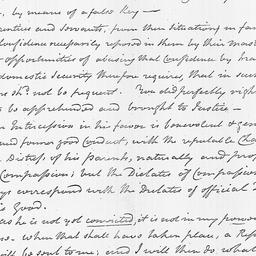 , by means of a false Key —
entices and Servants, from their situations in fam
Confidence necessarily reposed in them by their Mast
opportunities of abusing that Confidence by
domestic Security therefore requires, that in such
sh.d not be frequent. You did perfectly right
to be apprehended and brought to Justice —
Intercession in his favor is benevolent & gen
and former good Conduct, with the reputable Cha
Distress of his Parents, naturally and prop
Compassion; but the Dictates of Compassion
ys correspond with the Dictates of official
is Good.
as he is not yet convicted, it is not in my power
so. When that shall have taken place, a Rep
will be sent to me; and I will then do what